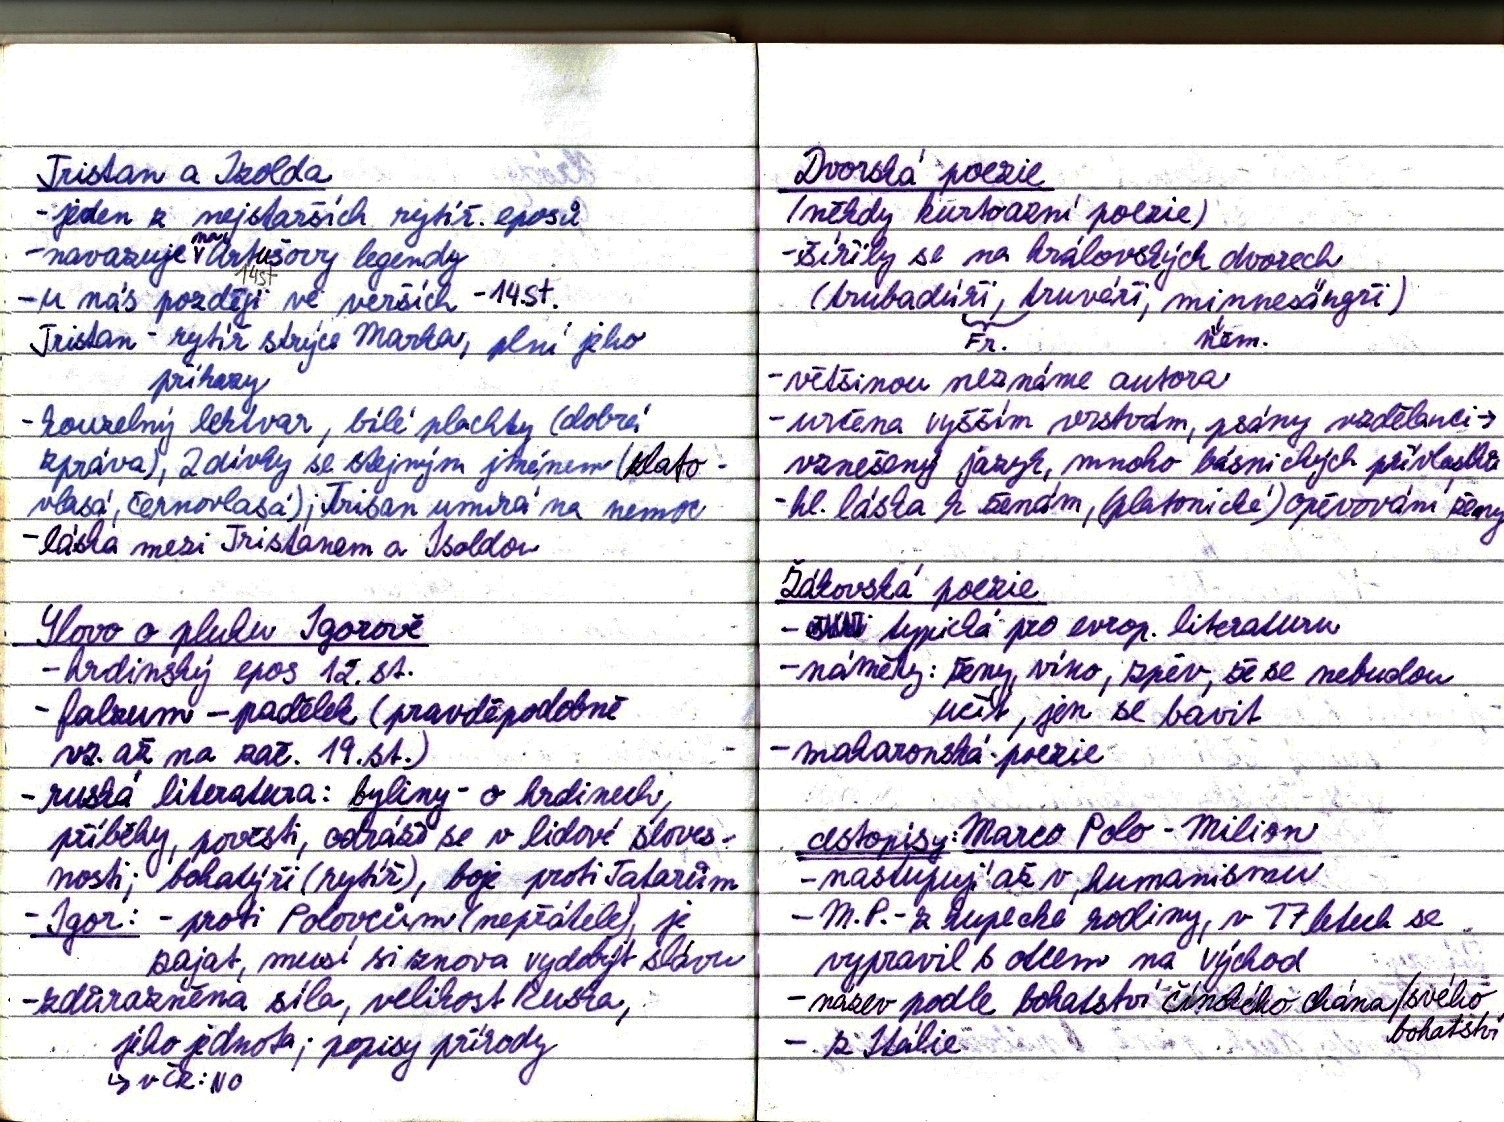 Tristan a Izolda
- jeden z nejstarších rytíř. eposů
- navazuje na Artušovy legendy
14st
- u nás později ve verších - 14.st.
Tristan - rytíř strýce Marka, plní jeho
příkazy
- kouzelný lektvar, bílé plachty (dobrá
zpráva), 2 dívky se stejným jménem (zlato-
vlasá, černovlasá); Tristan umírá na nemoc
- láska mezi Tristanem a Isoldou
Slovo o pluku Igorově
- hrdinský epos 12. st.
- falzum - padělek (pravděpodobně
vz. až na zač. 19. st.)
- ruská literatura: byliny - o hrdinech,
příběhy, pověsti, odráží se v lidové sloves-
nosti; bohatýři (rytíř), boje proti Tatarům
- Igor: - proti Polovcům (nepřátelé), je
zajat, musí si znova vydobýt slávu
- zdůrazněna síla, velikost Ruska,
jeho jednota; popisy přírody
↳ v ČR: NO
Dvorská poezie
(někdy kurtoazní poezie)
- šířily se na královských dvorech
(trubadúři, truvéři, minnesängři)
Fr. něm.
- většinou neznáme autora
- určena vyšším vrstvám, psány vzdělanci →
vznešený jazyk, mnoho básnických přívlastků
- hl. láska k ženám, (platonické) opěvování ženy
Žákovská poezie
- typická pro evrop. literaturu
- náměty: ženy, víno, zpěv, že se nebudou
učit, jen se bavit
- makaronská poezie
cstopisy: Marco Polo - Milion
- nastupují až v humanismu
- M.P. - z kupecké rodiny, v 17 letech se
vypravil s otcem na východ
- název podle bohatství čínského chána / svého
bohatství
- z Itálie